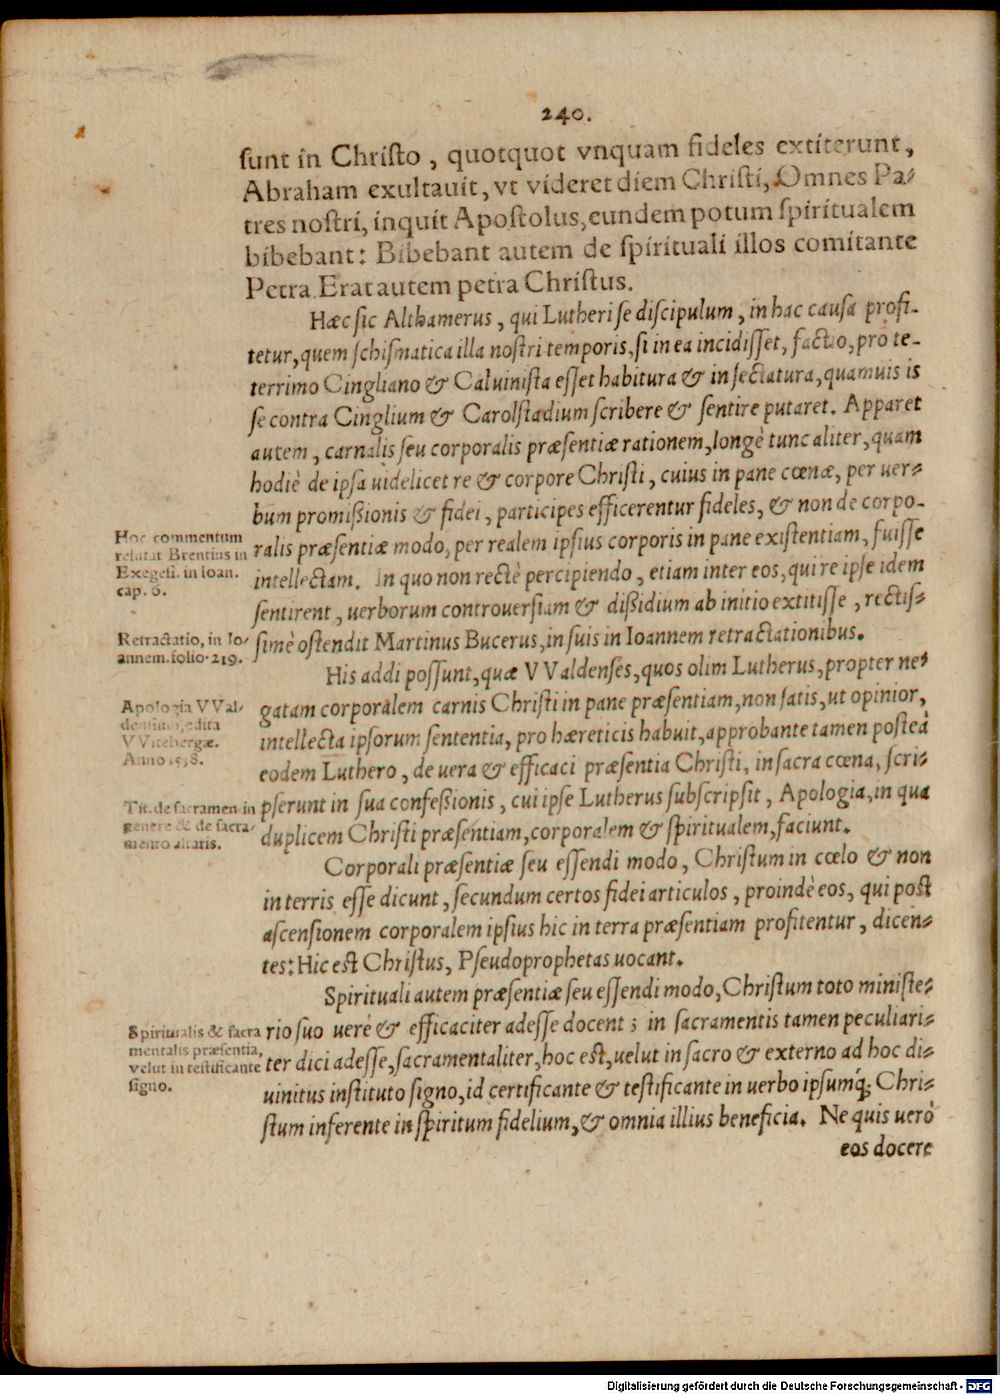 240.
sunt in Christo, quotquot vnquam fideles extiterunt,
Abraham exultauit, vt videret diem Christi, Omnes Pa-
tres nostri, inquit Apostolus, eundem potum spiritualem
bibebant: Bibebant autem de spirituali illos comitante
Petra. Erat autem petra Christus.
Hæc sic Althamerus, qui Lutheri se discipulum, in hac causa profi-
tetur, quem schismatica illa nostri temporis, si in ea incidisset, factio, pro te-
terrimo Cingliano & Caluinista esset habitura & insectatura, quamuis is
se contra Cinglium & Carolstadium scribere & sentire putaret. Apparet
autem, carnalis seu corporalis præsentiæ rationem, longè tunc aliter, quam
hodiè de ipsa uidelicet re & corpore Christi, cuius in pane cœnæ, per uer-
bum promißionis & fidei, participes efficerentur fideles, & non de corpo-
ralis præsentiæ modo, per realem ipsius corporis in pane existentiam, fuisse
intellectam. In quo non rectè percipiendo, etiam inter eos, qui re ipse idem
sentirent, uerborum controuersiam & dißidium ab initio extitisse, rectis-
simè ostendit Martinus Bucerus, in suis in Ioannem retractationibus.
Hoc commentum
refutat Brentius in
Exegesi. in Ioan.
cap. 6.
Retractatio, in Io-
annem. folio. 219.
His addi possunt, quæ VValdenses, quos olim Lutherus, propter ne-
gatam corporalem carnis Christi in pane præsentiam, non satis, ut opinior,
intellecta ipsorum sententia, pro hæreticis habuit, approbante tamen posteà
eodem Luthero, de uera & efficaci præsentia Christi, in sacra cœna, scri-
pserunt in sua confeßionis, cui ipse Lutherus subscripsit, Apologia, in qua
duplicem Christi præsentiam, corporalem & spiritualem, faciunt.
Apologia VVal-
densium, edita
VVitebergæ.
Anno 1538.
Tit. de sacramen. in
genere & de sacra-
mento altaris.
Corporali præsentiæ seu essendi modo, Christum in cœlo & non
in terris esse dicunt, secundum certos fidei articulos, proindè eos, qui post
ascensionem corporalem ipsius hic in terra præsentiam profitentur, dicen-
tes: Hic est Christus, Pseudoprophetas uocant.
Spirituali autem præsentiæ seu essendi modo, Christum toto ministe-
rio suo uerè & efficaciter adesse docent; in sacramentis tamen peculiari-
ter dici adesse, sacramentaliter, hoc est, uelut in sacro & externo ad hoc di-
uinitus instituto signo, id certificante & testificante in uerbo ipsumq; Chri-
stum inferente in spiritum fidelium, & omnia illius beneficia. Ne quis uerò
Spiritualis & sacra
mentalis præsentia,
velut in testificante
signo.
eos docere
Digitalisierung gefördert durch die Deutsche Forschungsgemeinschaft - DFG